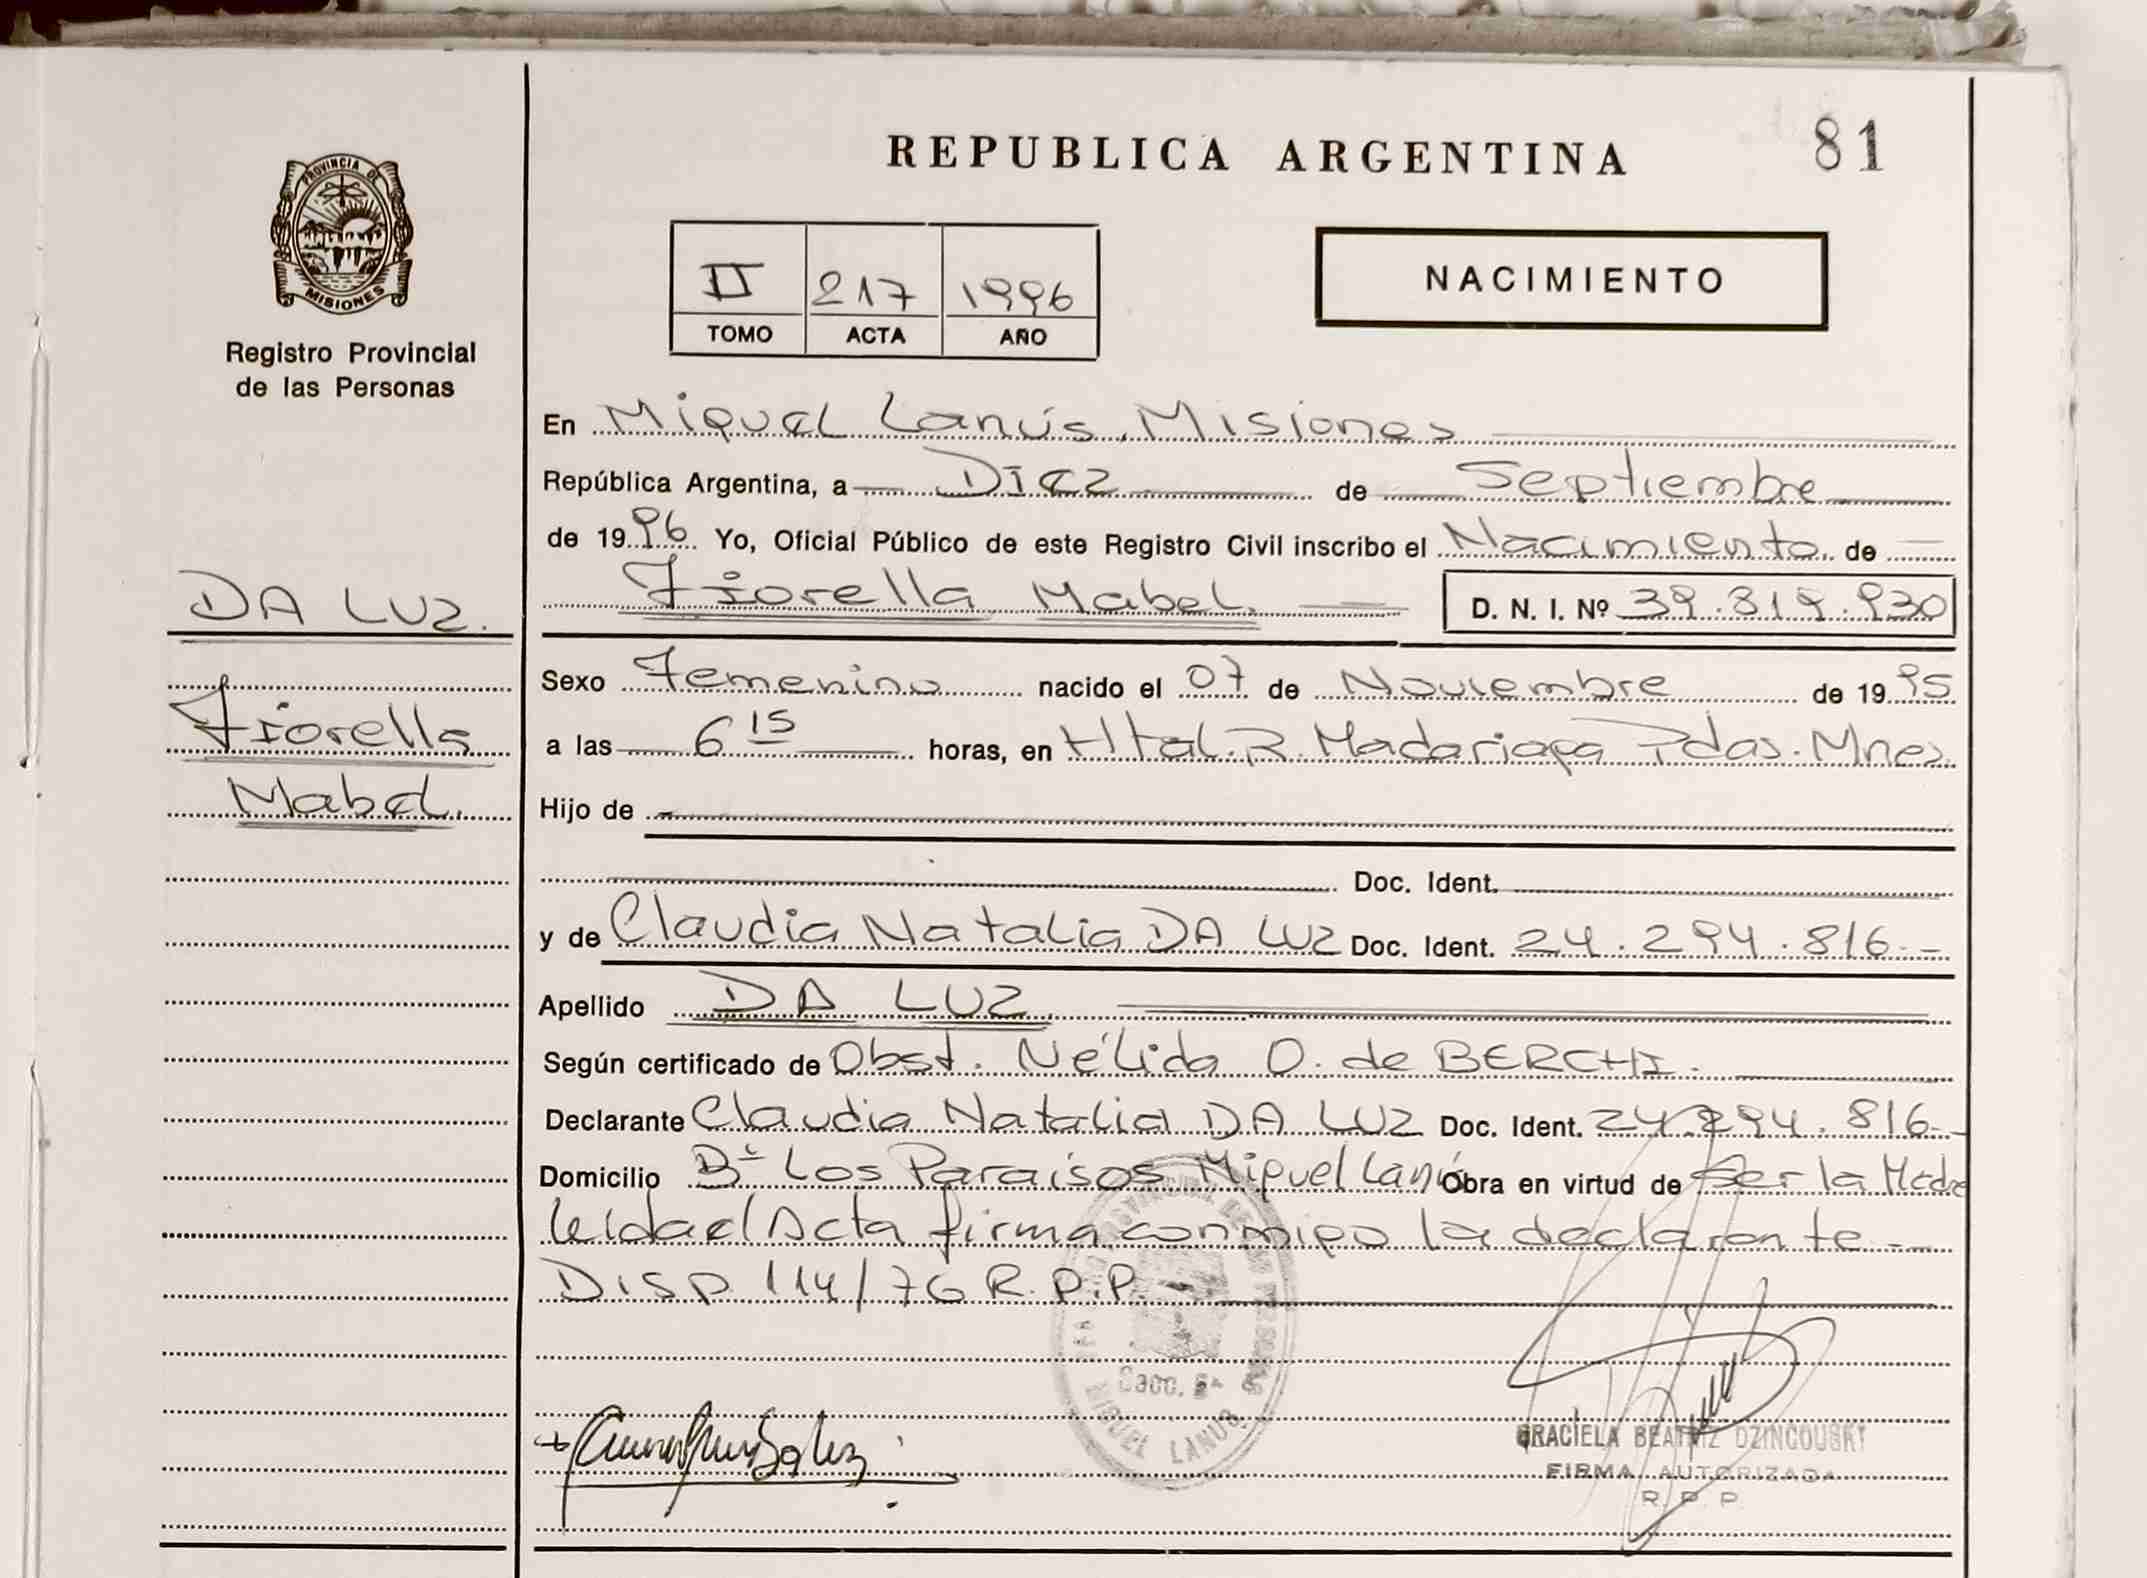 PROVINCIA DE
MISIONES
Registro Provincial
de las Personas
DA LUZ.
Fiorella
Mabel.
REPUBLICA ARGENTINA
81
II 217 1996
TOMO ACTA AÑO
NACIMIENTO
En Miguel Lanús, Misiones
República Argentina, a Diez de Septiembre
de 1996 Yo, Oficial Público de este Registro Civil inscribo el Nacimiento de
Fiorella Mabel. D. N. I. Nº 39.819.930
Sexo Femenino nacido el 07 de Noviembre de 1995
a las 6 15 horas, en Htal. R. Madariaga Pdas. Mnes.
Hijo de
Doc. Ident.
y de Claudia Natalia DA LUZ Doc. Ident. 24.294.816.-
Apellido DA LUZ
Según certificado de Obst. Nélida O. de BERCHI.
Declarante Claudia Natalia DA LUZ Doc. Ident. 24.294.816.-
Domicilio Bº Los Paraísos Miguel Lanús Obra en virtud de Ser la Madre
leida el Acta firma conmigo la declarante.-
DISP. 114/76 R.P.P.-
Secc. 5ª
MIGUEL LANUS
GRACIELA BEATRIZ DZINCOUSKY
FIRMA AUTORIZADA
R. P. P.